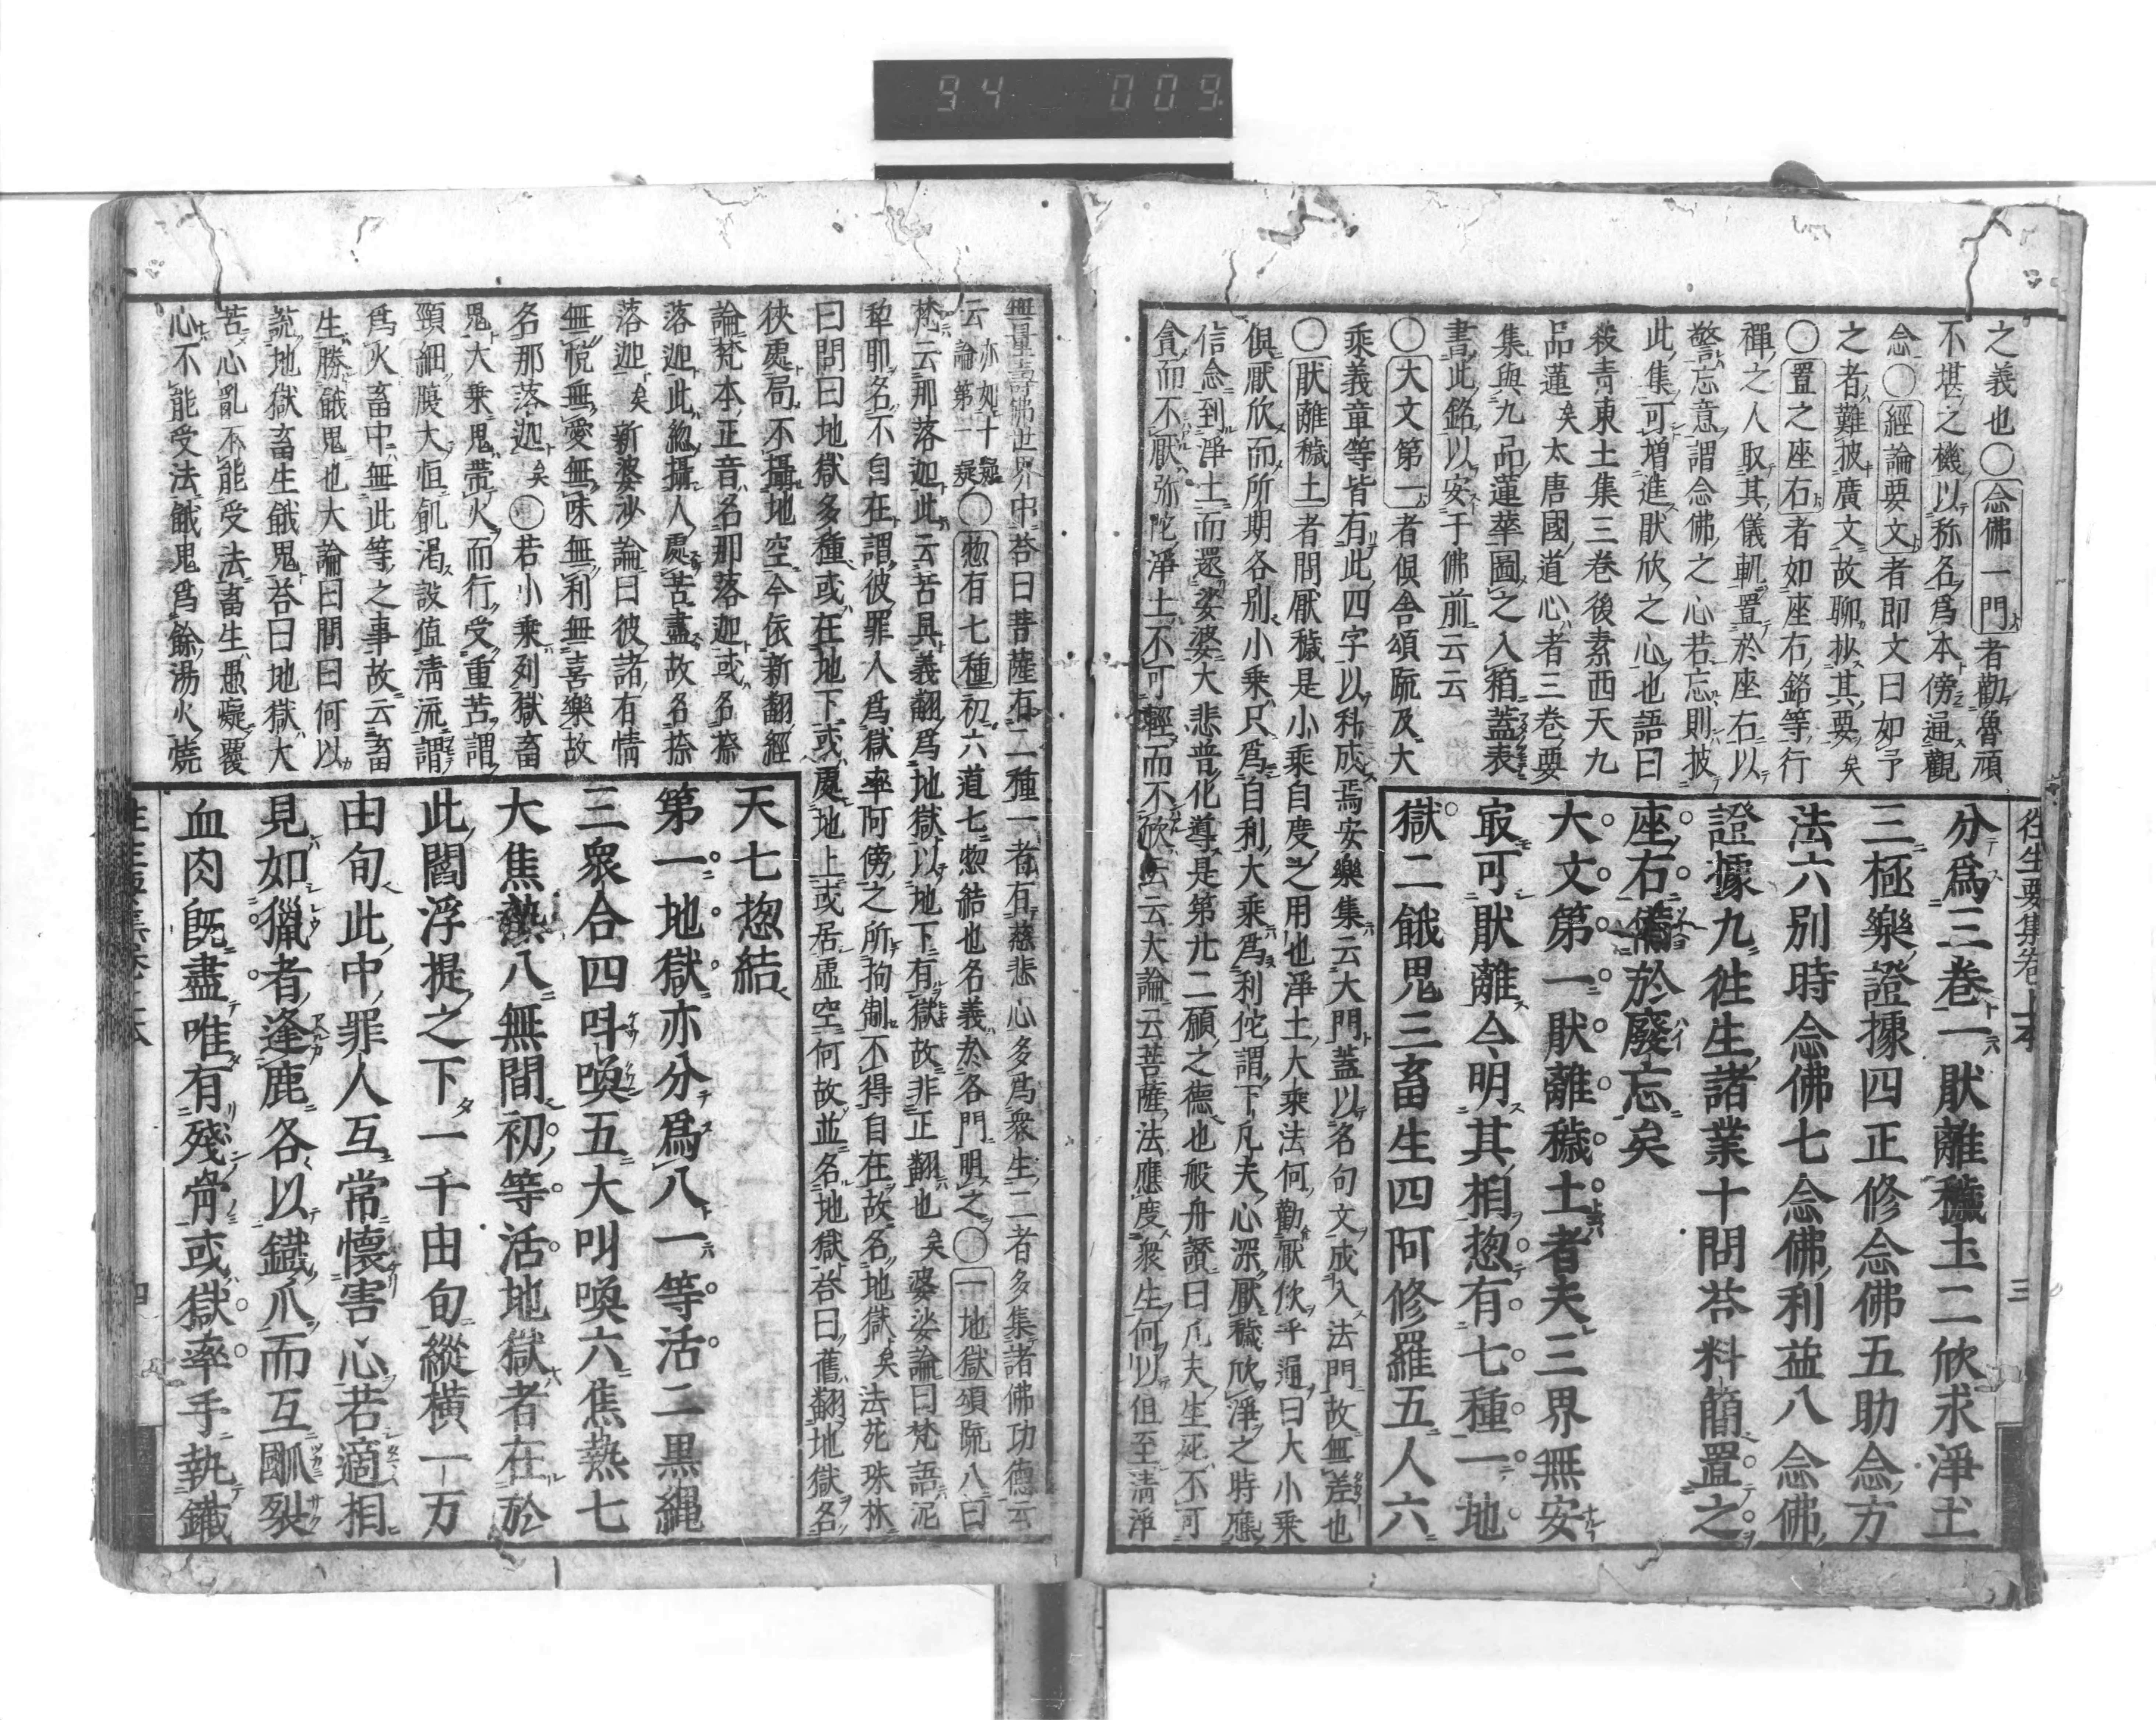 94 009
徃生要集卷上本
三
之義也〇念佛一門者勸魯頑
不堪之機以称名爲本傍通觀
念〇經論要文者即文曰如予
之者難披廣文故聊抄其要矣
〇置之座右者如座右銘等行
禪之人取其儀軌置於座右以
警忘意謂念佛之心若忘則披
此集可増進猒欣之心也語曰
殺青東土集三卷後素西天九
品蓮矣太唐國道心者三卷要
集與九品蓮華圖之入箱蓋表
書此銘以安于佛前云云
〇大文第一者倶舍頌疏及大
乘義章等皆有此四字以科成焉安樂集云大門蓋以名句文成入法門故無差也
〇猒離穢土者問厭穢是小乘自度之用也淨土大乘法何勸厭欣乎通曰大小乘
倶厭欣而所期各別小乘只爲自利大乘爲利佗謂下凡夫心深厭穢欣淨之時應
信念到淨土而還娑婆大悲普化導是第廿二願之德也般舟讃曰凡夫生死不可
貪而不厭弥陀淨土不可輕而不欣云云大論云菩薩法應度衆生何以但至清淨
分爲三卷一猒離穢土二欣求淨土
三極樂證據四正修念佛五助念方
法六別時念佛七念佛利益八念佛
證據九徃生諸業十問荅料簡置之
座右備於廢忘矣
大文第一猒離穢土者夫三界無安
冣可猒離今明其相惣有七種一地
獄二餓鬼三畜生四阿修羅五人六
無量壽佛世界中荅曰菩薩有二種一者有慈悲心多爲衆生二者多集諸佛功德云
云亦如十疑論第一疑〇惣有七種初六道七惣結也名義於各門明之〇一地獄頌疏八曰
梵云那落迦此云苦具義翻爲地獄以地下有獄故非正翻也矣婆沙論曰梵語泥
犂耶名不自在謂彼罪人爲獄率阿傍之所拘制不得自在故名地獄矣法苑珠林
曰問曰地獄多種或在地下或處地上或居虚空何故並名地獄荅曰舊翻地獄名
狹處局不攝地空今依新翻經
論梵本正音名那落迦或名捺
落迦此惣攝人處苦盡故名捺
落迦矣新婆沙論曰彼諸有情
無悅無愛無味無利無喜樂故
名那落迦矣〇若小乘列獄畜
鬼大乘鬼帶火而行受重苦謂
頸細腹大恒飢渴設値清流謂
爲火畜中無此等之事故云畜
生勝餓鬼也大論曰問曰何以
說地獄畜生餓鬼荅曰地獄大
苦心亂不能受法畜生愚癡覆
心不能受法餓鬼爲餘湯火燒
天七惣結
第一地獄亦分爲八一等活二黒縄
三衆合四叫喚五大叫喚六焦熱七
大焦熱八無間初等活地獄者在於
此閻浮提之下一千由旬縱横一万
由旬此中罪人互常懷害心若適相
見如獵者逢鹿各以鐵爪而互𤔩裂
血肉既盡唯有殘骨或獄率手執鐵